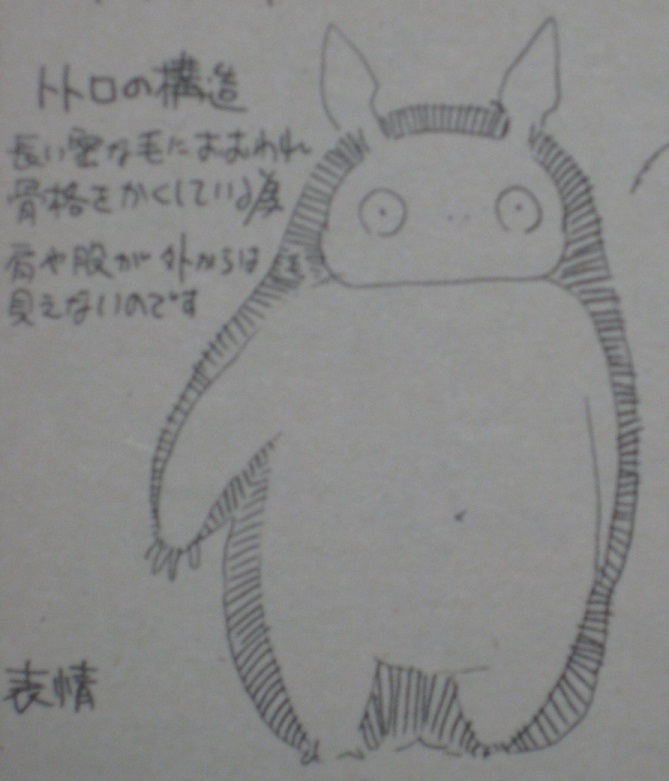 トトロの構造
長い雲な毛におおわれ
骨格をかくしている為
肩や股が外からは
見えないのです
表情